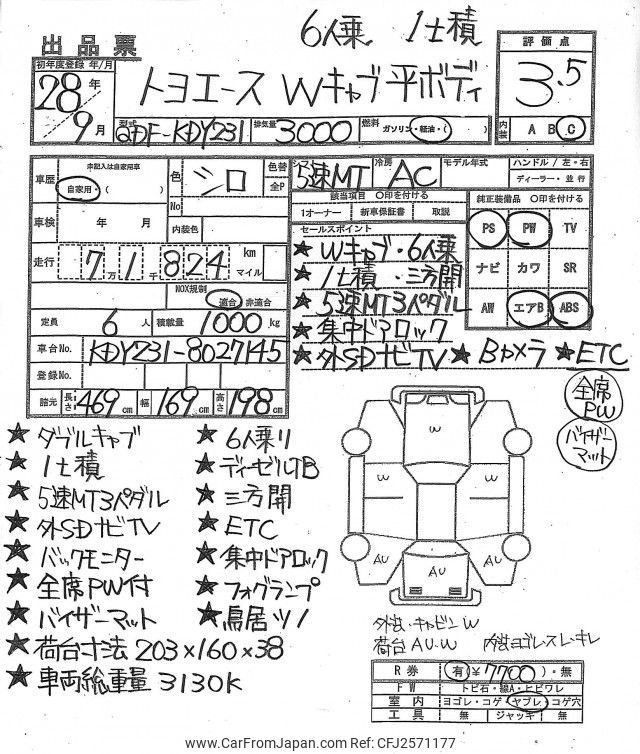 6人乗 1t積
出品票
初年度登録 年/月
28年
9月
トヨエース Wキャブ 平ボディ
評価点
3.5
内装 A B C
型式 QDF-KDY231 排気量 3000 燃料 ガソリン・軽油・( )
車歴 未記入は自家用車
自家用・( )
色 シロ 色替
全P
No
5速MT 冷房 AC モデル年式 ハンドル/左・右
ディーラー・並行
車検 年 月 内装色
該当項目 〇印を付ける
1オーナー 新車保証書 取説
純正装備品 〇印を付ける
PS PW TV
ナビ カワ SR
AW エアB ABS
走行 7万1千824 km
マイル
NOX規制
適合・非適合
定員 6人 積載量 1000kg
車台No. KDY231-8027145
登録No.
諸元 長さ 469cm 幅 169cm 高さ 198cm
セールスポイント
★ Wキャブ・6人乗
★ 1t積・三方開
★ 5速MT3ペダル
★ 集中ドアロック
★ 外SDナビTV ★ Bカメラ ★ ETC
全席PW
バイザーマット
★ ダブルキャブ ★ 6人乗り
★ 1t積 ★ ディーゼルTB
★ 5速MT3ペダル ★ 三方開
★ 外SDナビTV ★ ETC
★ バックモニター ★ 集中ドアロック
★ 全席PW付 ★ フォグランプ
★ バイザーマット ★ 鳥居ツノ
★ 荷台寸法 203×160×38
★ 車両総重量 3130K
W
W W
W
AU AU
AU
外装・キャビンW
荷台 AU・W 内装ヨゴレスレ・キレ
R券 有(¥7700)・無
FW トビ石・線A・ヒビワレ
室内 ヨゴレ・コゲ・ヤブレ・コゲ穴
工具 無 ジャッキ 無
www.CarFromJapan.com Ref: CFJ2571177